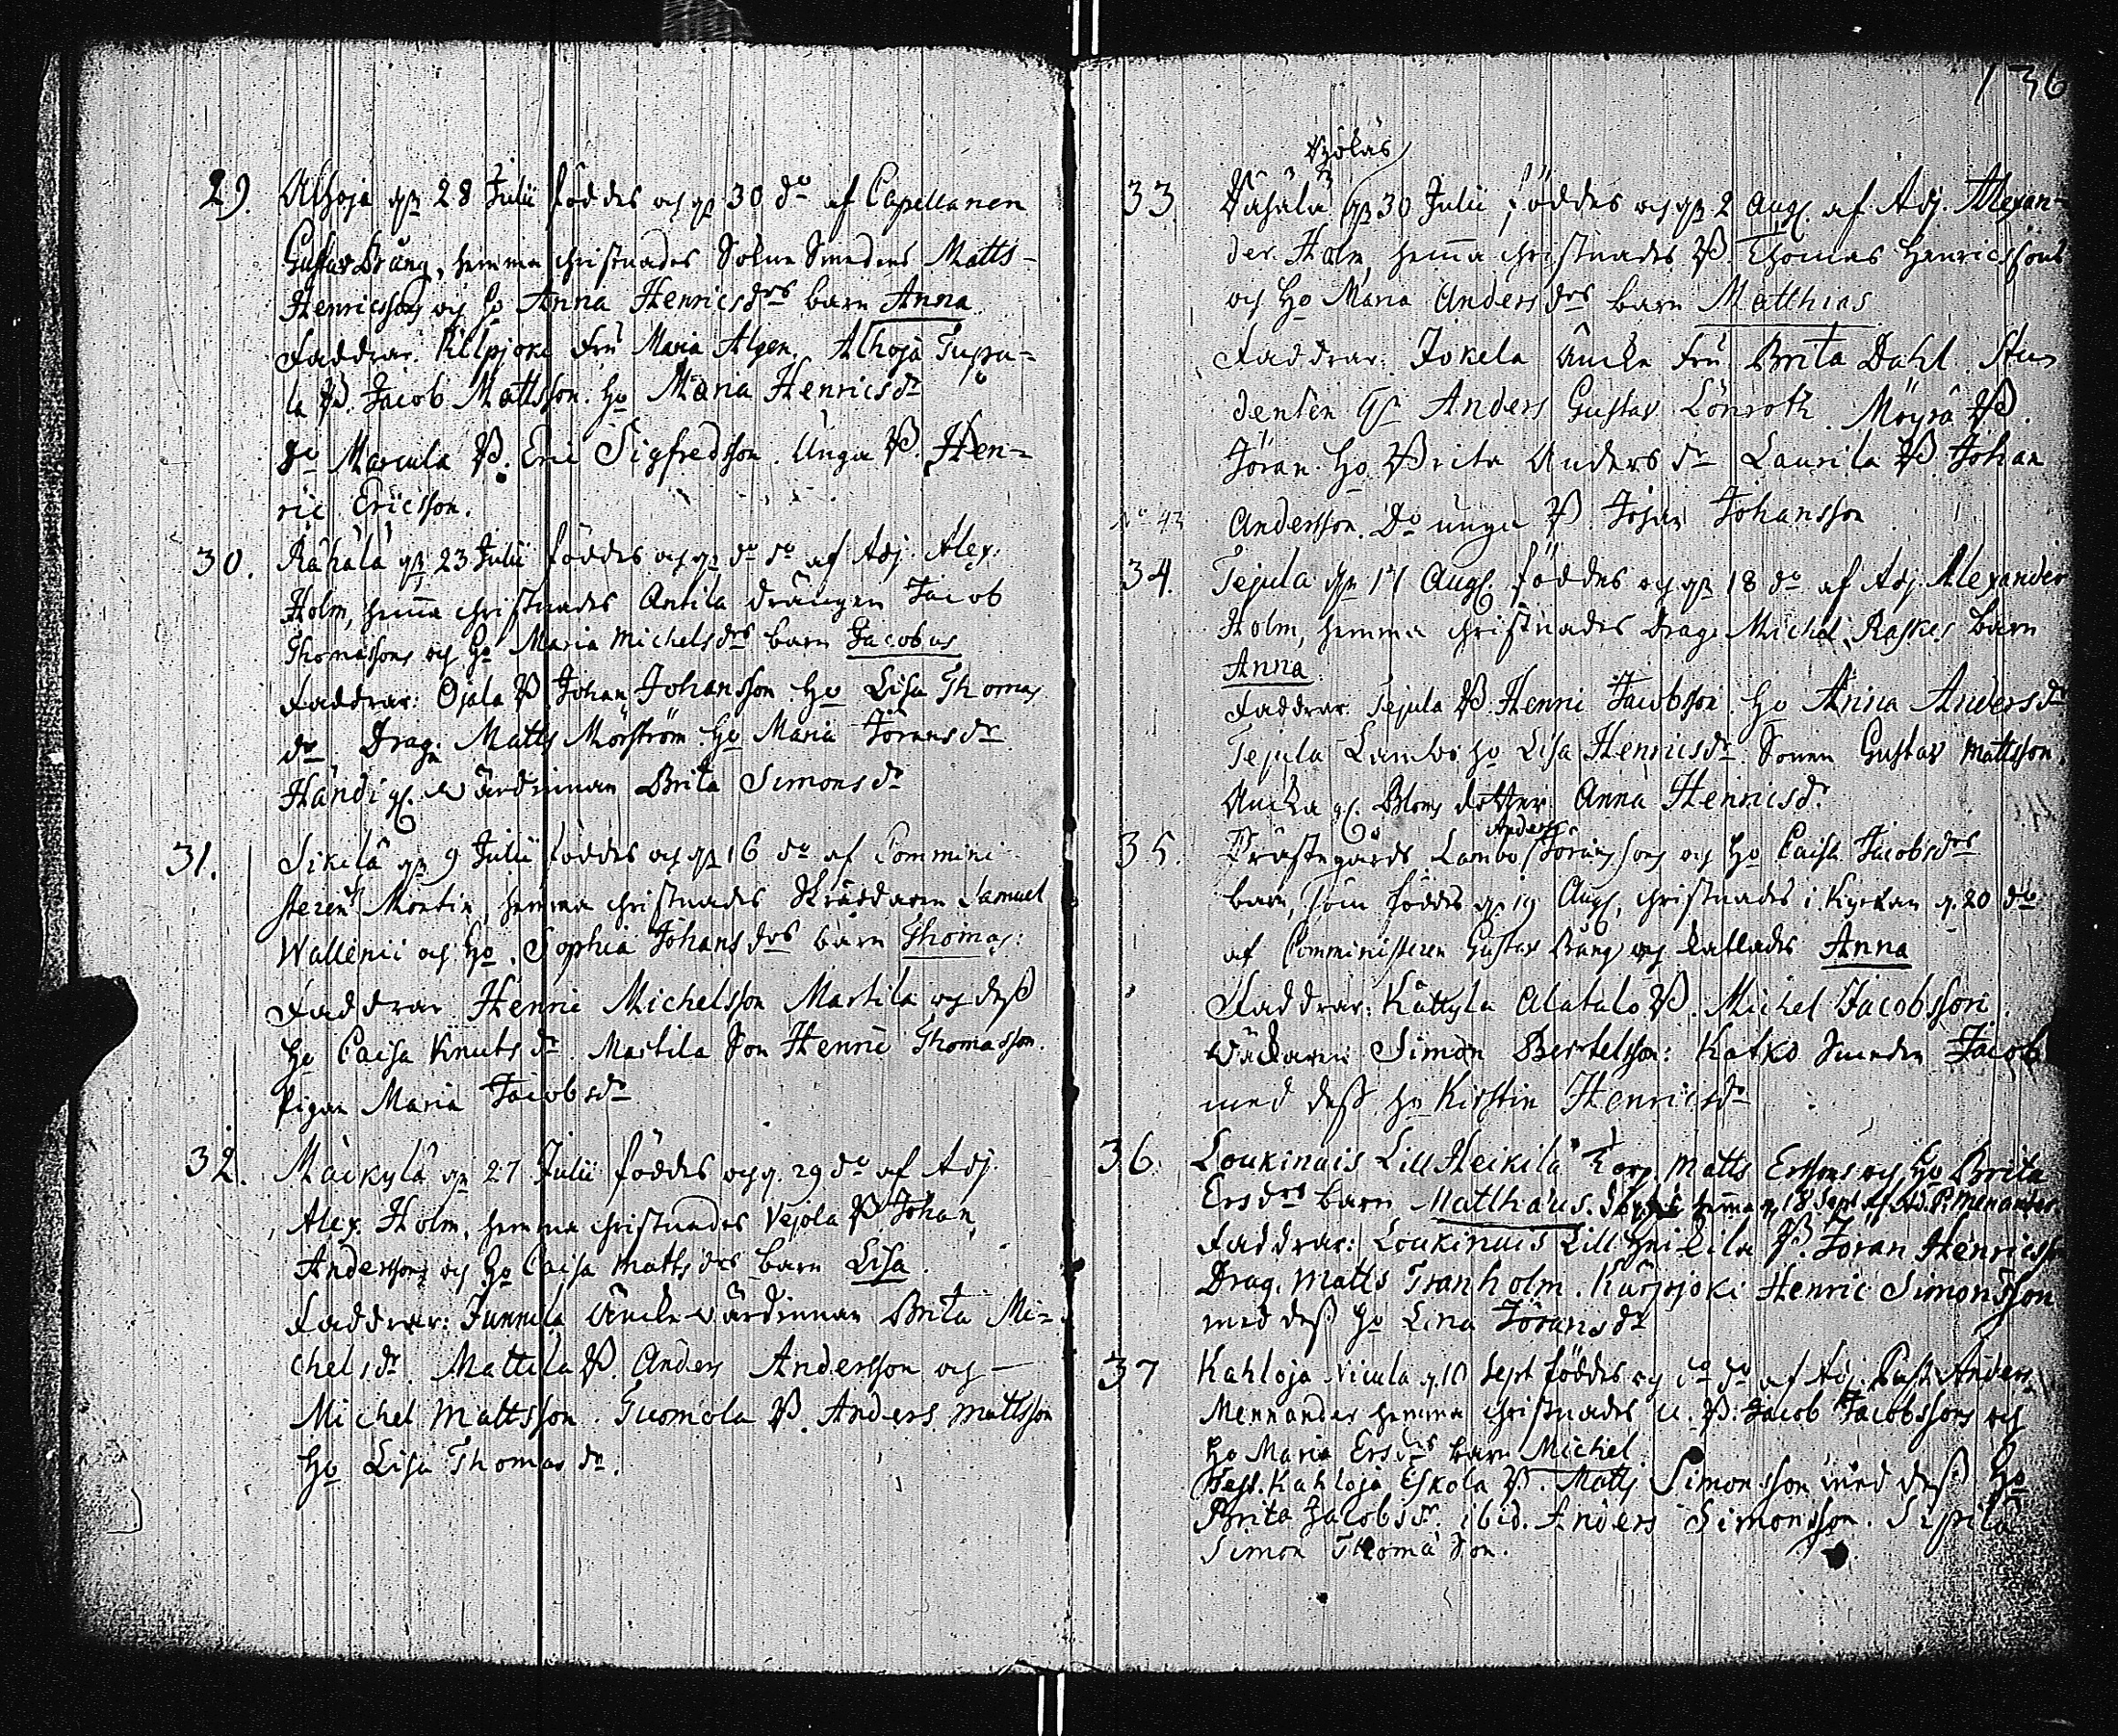 29. Alhoja 28 Julii föddes och 30 do af Capellanen
Gustav Bräng, hemma christnades Sokne Smedens Matts
Henricssons och Ho Anna Henricsdrs barn Anna
Faddrar: Kilpjoki Fru Maria Algen. Alhoja Tupu=
la B. Jacob Mattsson. Ho Maria Henricsdr
do Marcula B. Eric Sigfredsson. Unga B. Hen=
ric Ericsson.
30. Råhälä 23 Julii föddes och do do af Adj. Alex.
Holm, hemma christnades Antila Drängen Jacob
Thomassons och Ho Maria Michelsdrs barn Jacobus
Faddrar: Ojala B Johan Johansson Ho Lisa Thomas
dr Drag. Matts Morström Ho Maria Jöransdr
Händi gl. Wärdinnan Brita Simonsdr
31. Sikilä 9 Julii föddes och 16 do af Commini
steren Montin, hemma christnades Skräddaren Samuel
Wallenii och Ho. Sophia Johansdrs barn Thomas:
Faddrar Henric Michelsson Martila och dess
Ho Caisa Knutsdr. Martila Son Henric Thomasson.
Pigan Maria Jacobsdr
32. Mäckylä 27 Julii föddes och 29 do af Adj.
Alex. Holm, hemma christnades Vejola B Johan
Anderssons och Ho Caisa Mattsdrs barn Lisa.
Faddrar: Junnila Änckewärdinnan Brita Mi=
chelsdr. Mattila B. Anders Andersson och
Michel Mattsson. Tuomola B. Anders Mattsson
Ho Lisa Thomasdr.
136
33. 30 Julii föddes och 2 Aug. af Adj. Alexan=
der Holm, hemma christnades B. Thomas Henricssons
och Ho Maria Andersdrs barn Matthias
Faddrar: Jokela Ancke Fru Brita Dahl. Stu=
denten Hr Anders Gustav Lönroth. Möyrä B.
Jöran. Ho Brita Andersdr Laurila B. Johan
No 43 Andersson. Do unga B. Johan Johansson
34. Tejula 17 Aug. föddes och 18 do af Adj. Alexander
Holm, hemma christnades Drag. Michel Raskes barn
Anna.
Faddrar: Tejula B. Henric Jacobsson. Ho Anna Andersdr
Tejula Lambo Ho Lisa Henricsdr. Sonen Gustav Mattsson.
Anna Henricsdr.
Anders
35. Prästegårds Lambo Jöranssons och Ho Caisa Jacobsdrs
barn, som föddes 19 Aug, christnades i Kyrckan 20 do
af Comministeren Gustav Bräng och kallades Anna
Faddrar: Kättyla Alatalo B. Michel Jacobsson.
Wäckaren Simon Bertelsson: Katko Smeden Jacob
med dess Ho Kirstin Henricsdr
36. Loukinais Lill Heikilä Torp. Matts Erssons och Ho Brita
Ersdrs barn Matthäus. hemma 18 Sept af Adj. P. Menander.
Faddrar: Loukinais Lill Heikila B. Jöran Henricsson
Drag. Matts Tranholm. Kärpjoki Henric Simonsson
med dess Ho Lina Jöransdr
37 Kahloja Nicula 10 Sept föddes och do do af Adj. Past. Anders
Mennander hemma christnades U. B. Jacob Jacobssons och
Ho Maria Ersdrs barn Michel.
Test. Kahloja Eskola B. Matts Simonsson med dess Ho
Brita Jacobsdr. ibid. Anders Simonsson. Sipilä
Simon Thoma Son.